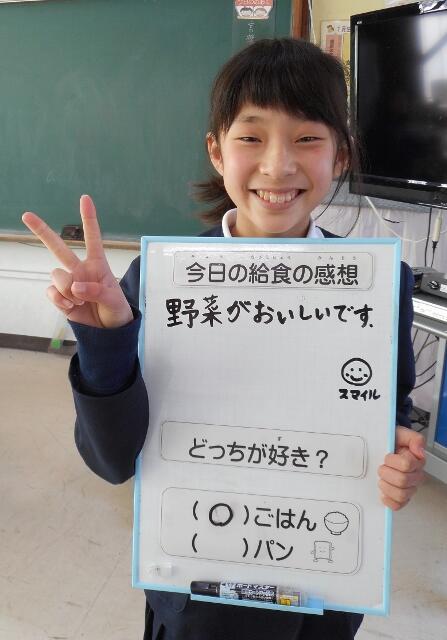 今日の給食の感想
野菜がおいしいです.
スマイル
どっちが好き？
(〇)ごはん
(　)パン
ボードマスター